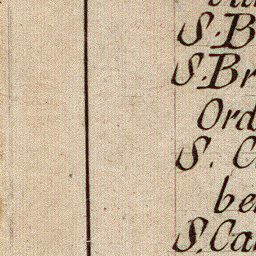 S. B
S. Br
Ord
S. C
be
S. Ca